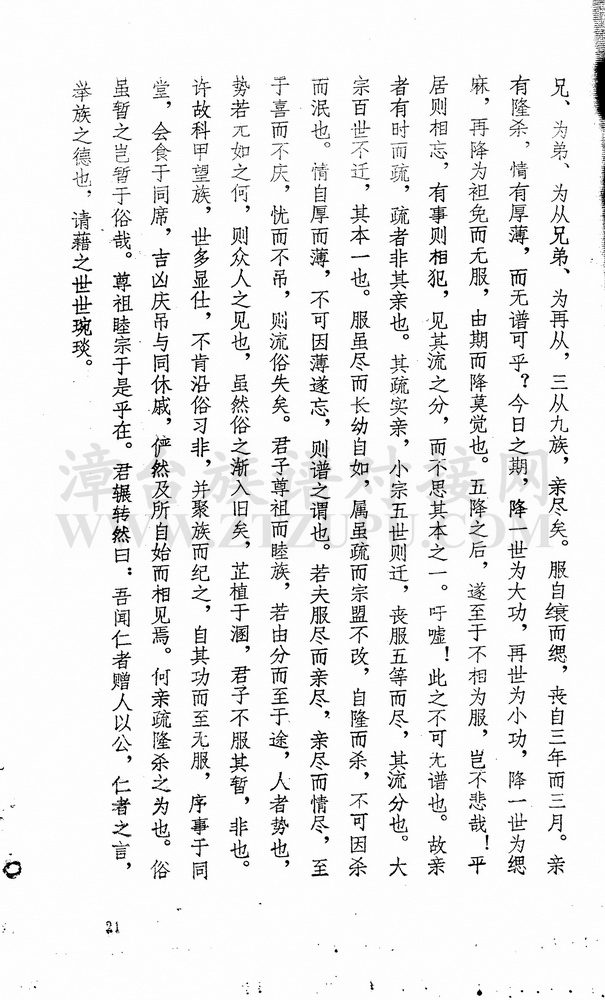 兄、为弟、为从兄弟、为再从，三从九族，亲尽矣。服自衰而缌，丧自三年而三月。亲
有隆杀，情有厚薄，而无谱可乎？今日之期，降一世为大功，再世为小功，降一世为缌
麻，再降为袒免而无服，由期而降莫觉也。五降之后，遂至于不相为服，岂不悲哉！平
居则相忘，有事则相犯，见其流之分，而不思其本之一。吁嘘！此之不可无谱也。故亲
者有时而疏，疏者非其亲也。其疏实亲，小宗五世则迁，丧服五等而尽，其流分也。大
宗百世不迁，其本一也。服虽尽而长幼自如，属虽疏而宗盟不改，自隆而杀，不可因杀
而泯也。情自厚而薄，不可因薄遂忘，则谱之谓也。若夫服尽而亲尽，亲尽而情尽，至
于喜而不庆，忧而不吊，则流俗失矣。君子尊祖而睦族，若由分而至于途，人者势也，
势若兀如之何，则众人之见也，虽然俗之渐入旧矣，芷植于溷，君子不服其暂，非也。
许故科甲望族，世多显仕，不肯沿俗习非，并聚族而纪之，自其功而至无服，序事于同
堂，会食于同席，吉凶庆吊与同休戚，俨然及所自始而相见焉。何亲疏隆杀之为也。俗
虽暂之岂暂于俗哉。尊祖睦宗于是乎在。君辗转然曰：吾闻仁者赠人以公，仁者之言，
举族之德也，请藉之世世琬琰。
21
漳台族谱对接网
WWW.ZTZUPU.COM